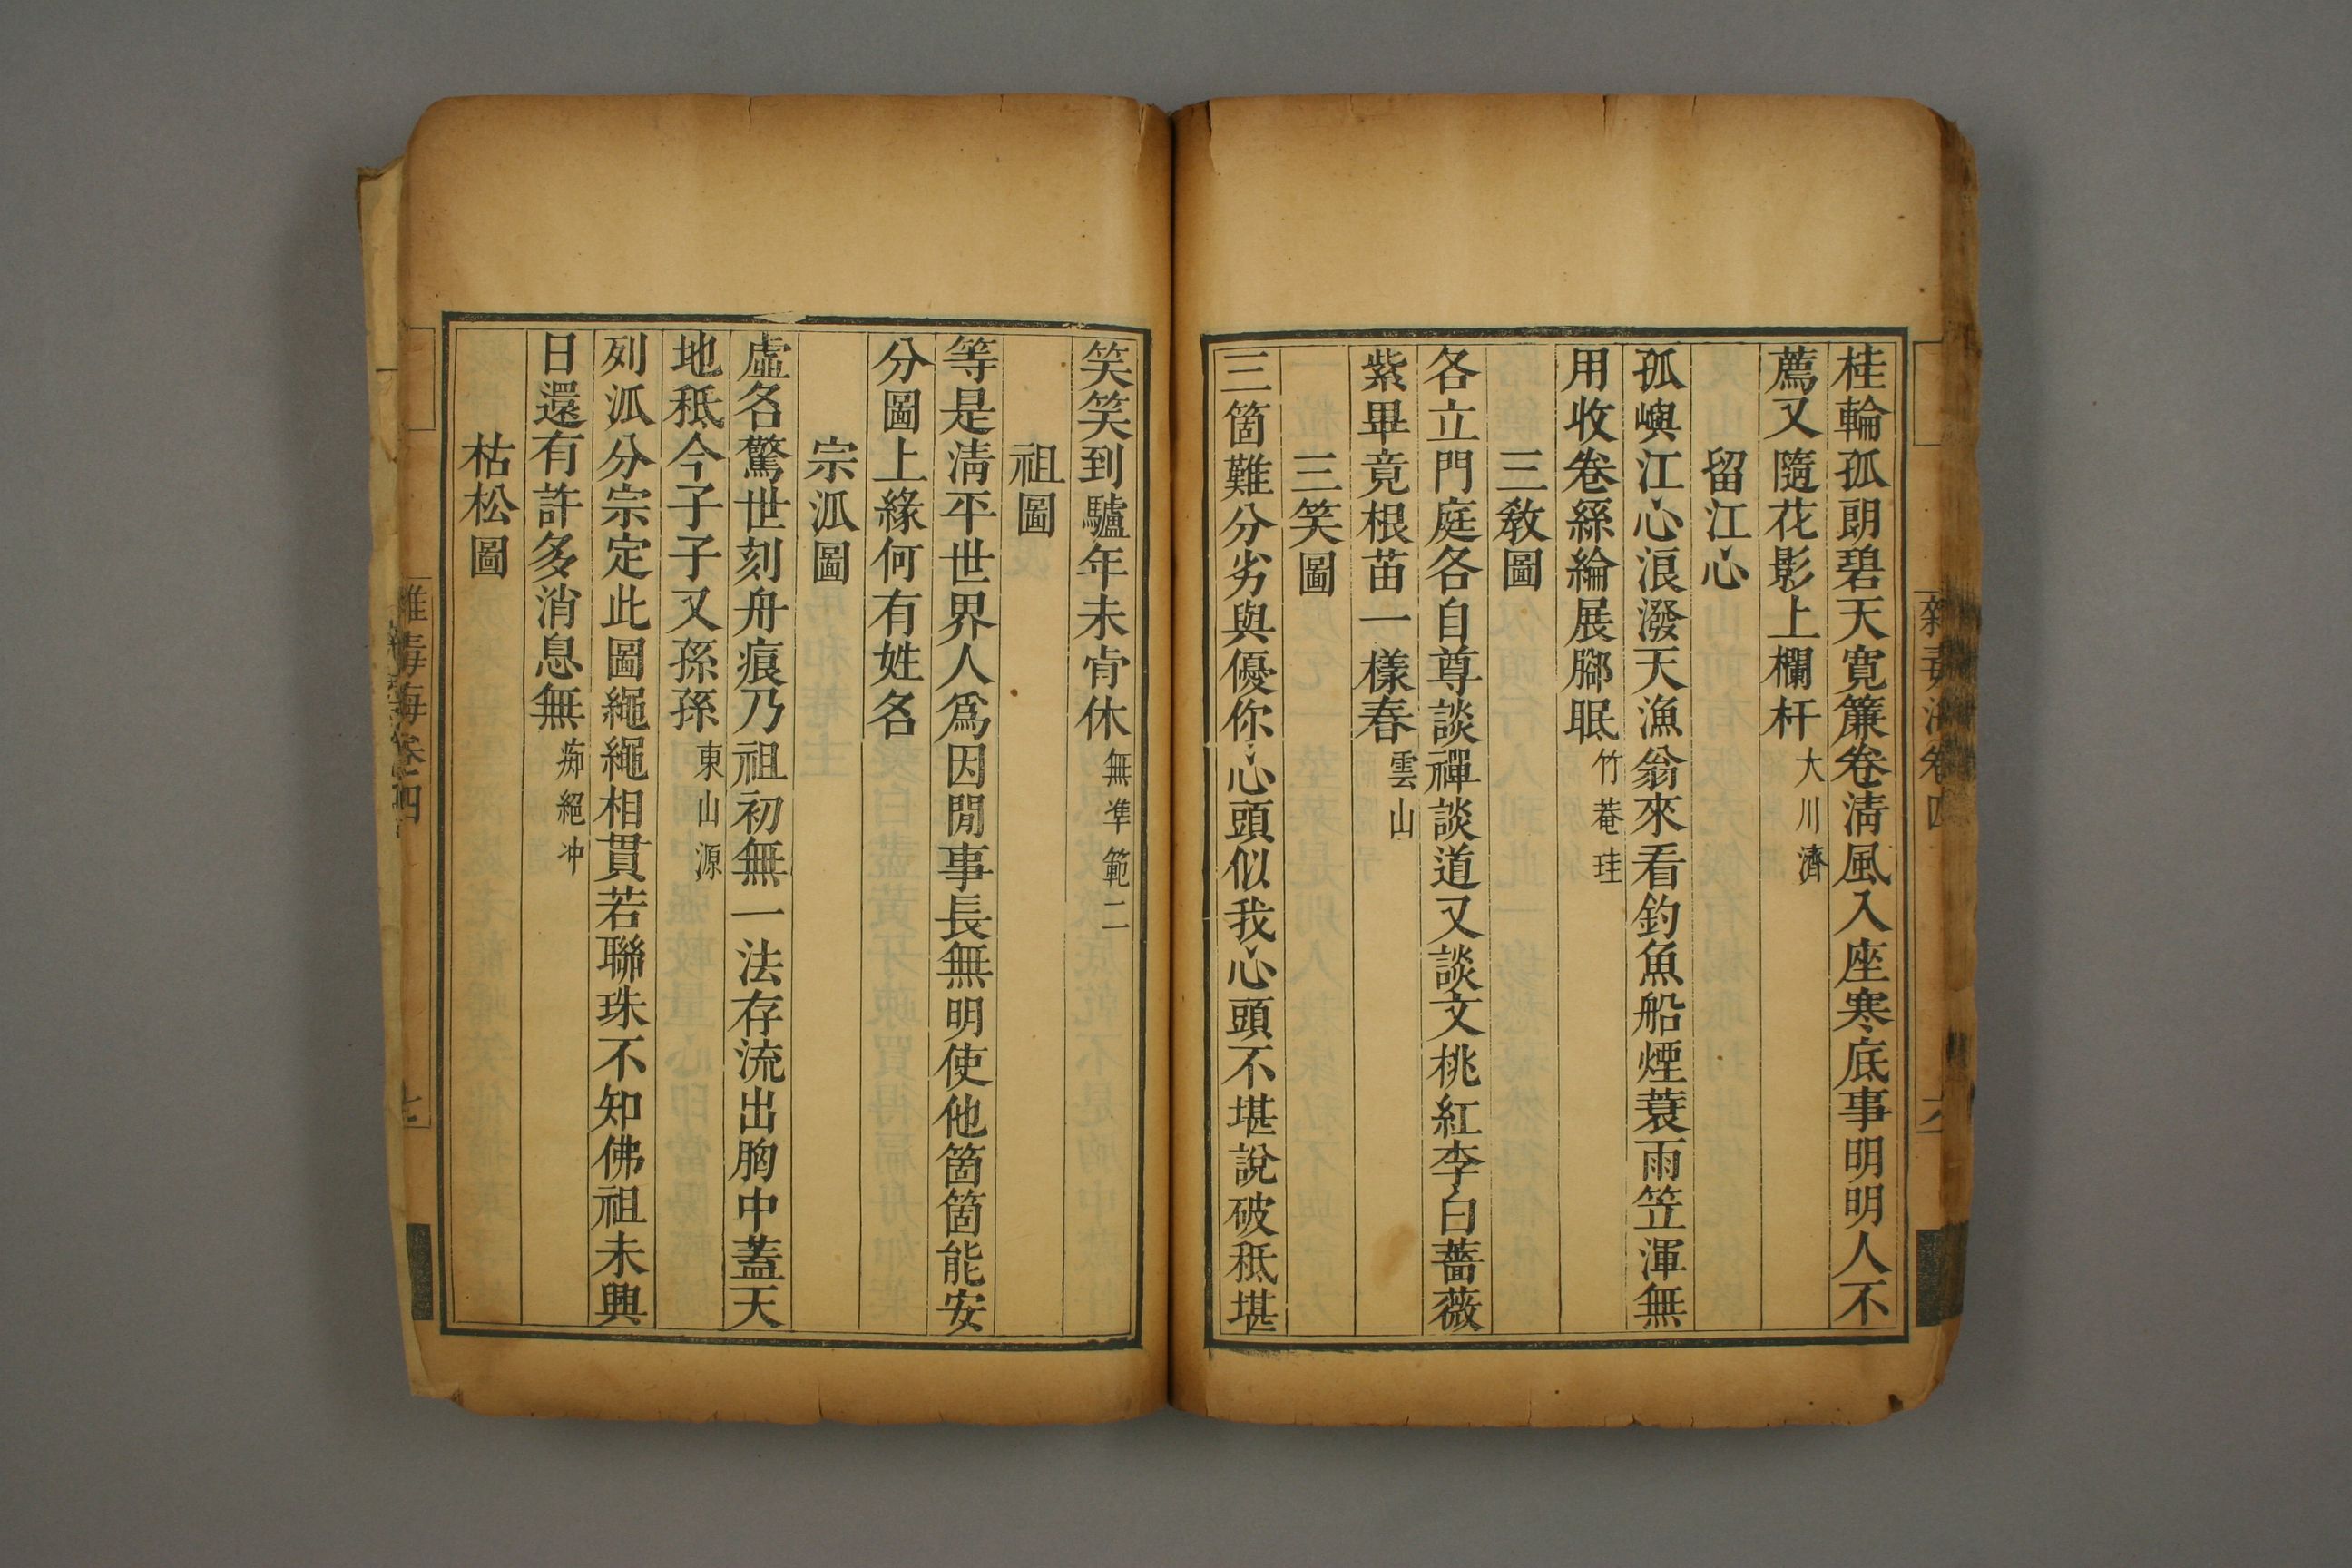 桂輪孤朗碧天寛簾卷清風入座寒底事明明人不
薦又隨花影上欄杆 大川濟
留江心
孤嶼江心浪潑天漁翁來看釣魚船煙蓑雨笠渾無
用收卷絲綸展腳眠 竹菴珪
三教圖
各立門庭各自尊談禪談道又談文桃紅李白薔薇
紫畢竟根苗一樣春 雲山
三笑圖
三箇難分劣與優你心頭似我心頭不堪說破秪堪
笑笑到驢年未肯休 無準範二
祖圖
等是清平世界人為因閒事長無明使他箇箇能安
分圖上緣何有姓名
宗泒圖
虛名驚世刻舟痕乃祖初無一法存流出胸中蓋天
地秪今子子又孫孫 東山源
列泒分宗定此圖繩繩相貫若聯珠不知佛祖未興
日還有許多消息無 痴絕冲
枯松圖
雜毒海卷四